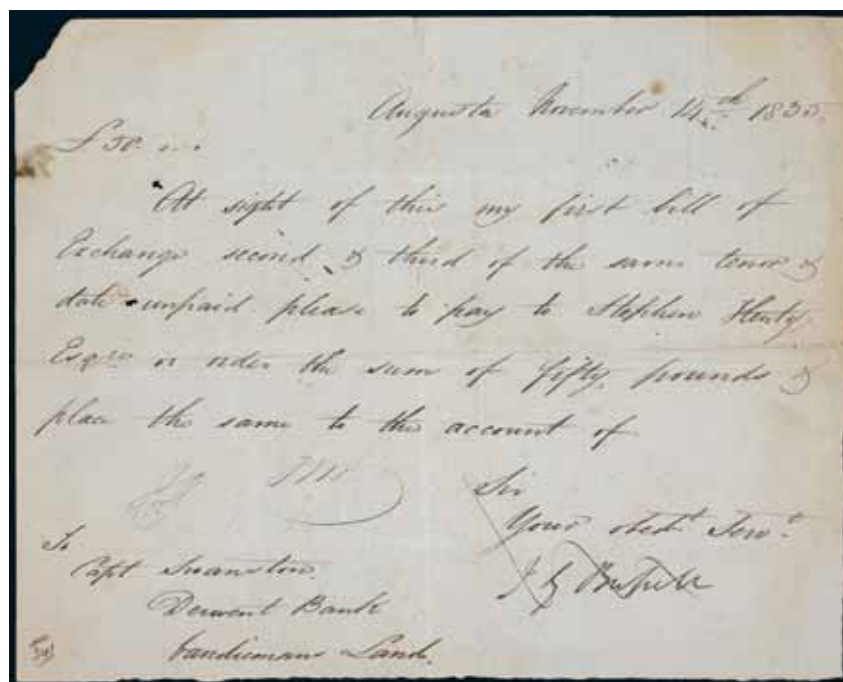 Augusta November 14th 183
£50 ...
At sight of this my first bill of
Exchange second & third of the same tenor &
date unpaid please to pay to Stephen Henty
Esqre or order the sum of fifty pounds &
place the same to the account of
Sir
Your obedt Servt
J G Bussell
To
Capt Swanston
Derwent Bank
Vandiemans Land.